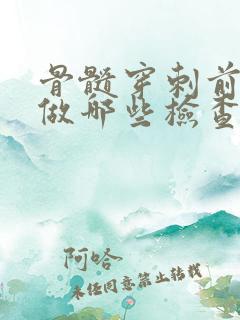 骨髓穿刺前
做哪些檢查
阿哈
未经同意禁止转载